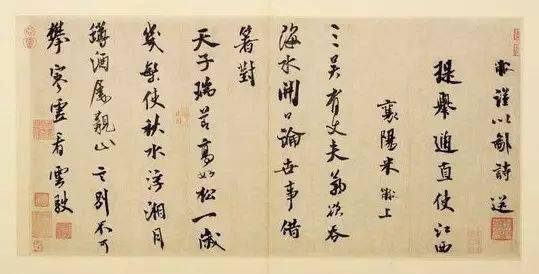 黻謹以鄙詩送
提舉通直使江西
襄陽米黻上
三吳有丈夫氣欲吞
海水開口論世事借
箸對
天子瑞節高如松一歲
幾繁使秋水浮湘月
罇酒屬親別不可
攀寒看雲駛